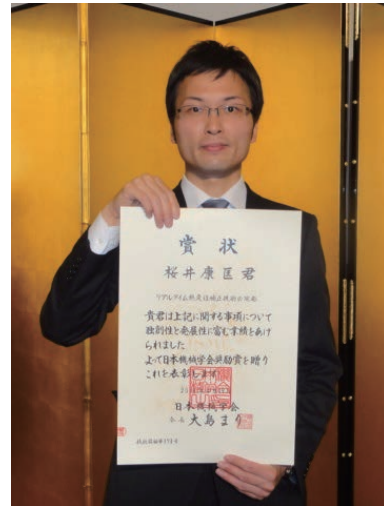 賞状
桜井康匡君
貴君は上記に関する事項について
独創性と発展性に富む業績をあげ
られました
よって日本機械学会奨励賞を贈り
これを表彰します
日本機械学会
会長 大島まり